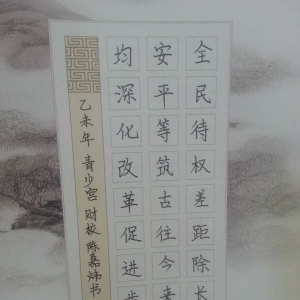 全民待权差距除长
安平等筑古往今来
均深化改革促进步
乙未年 青少宫 财校 陈嘉炜书